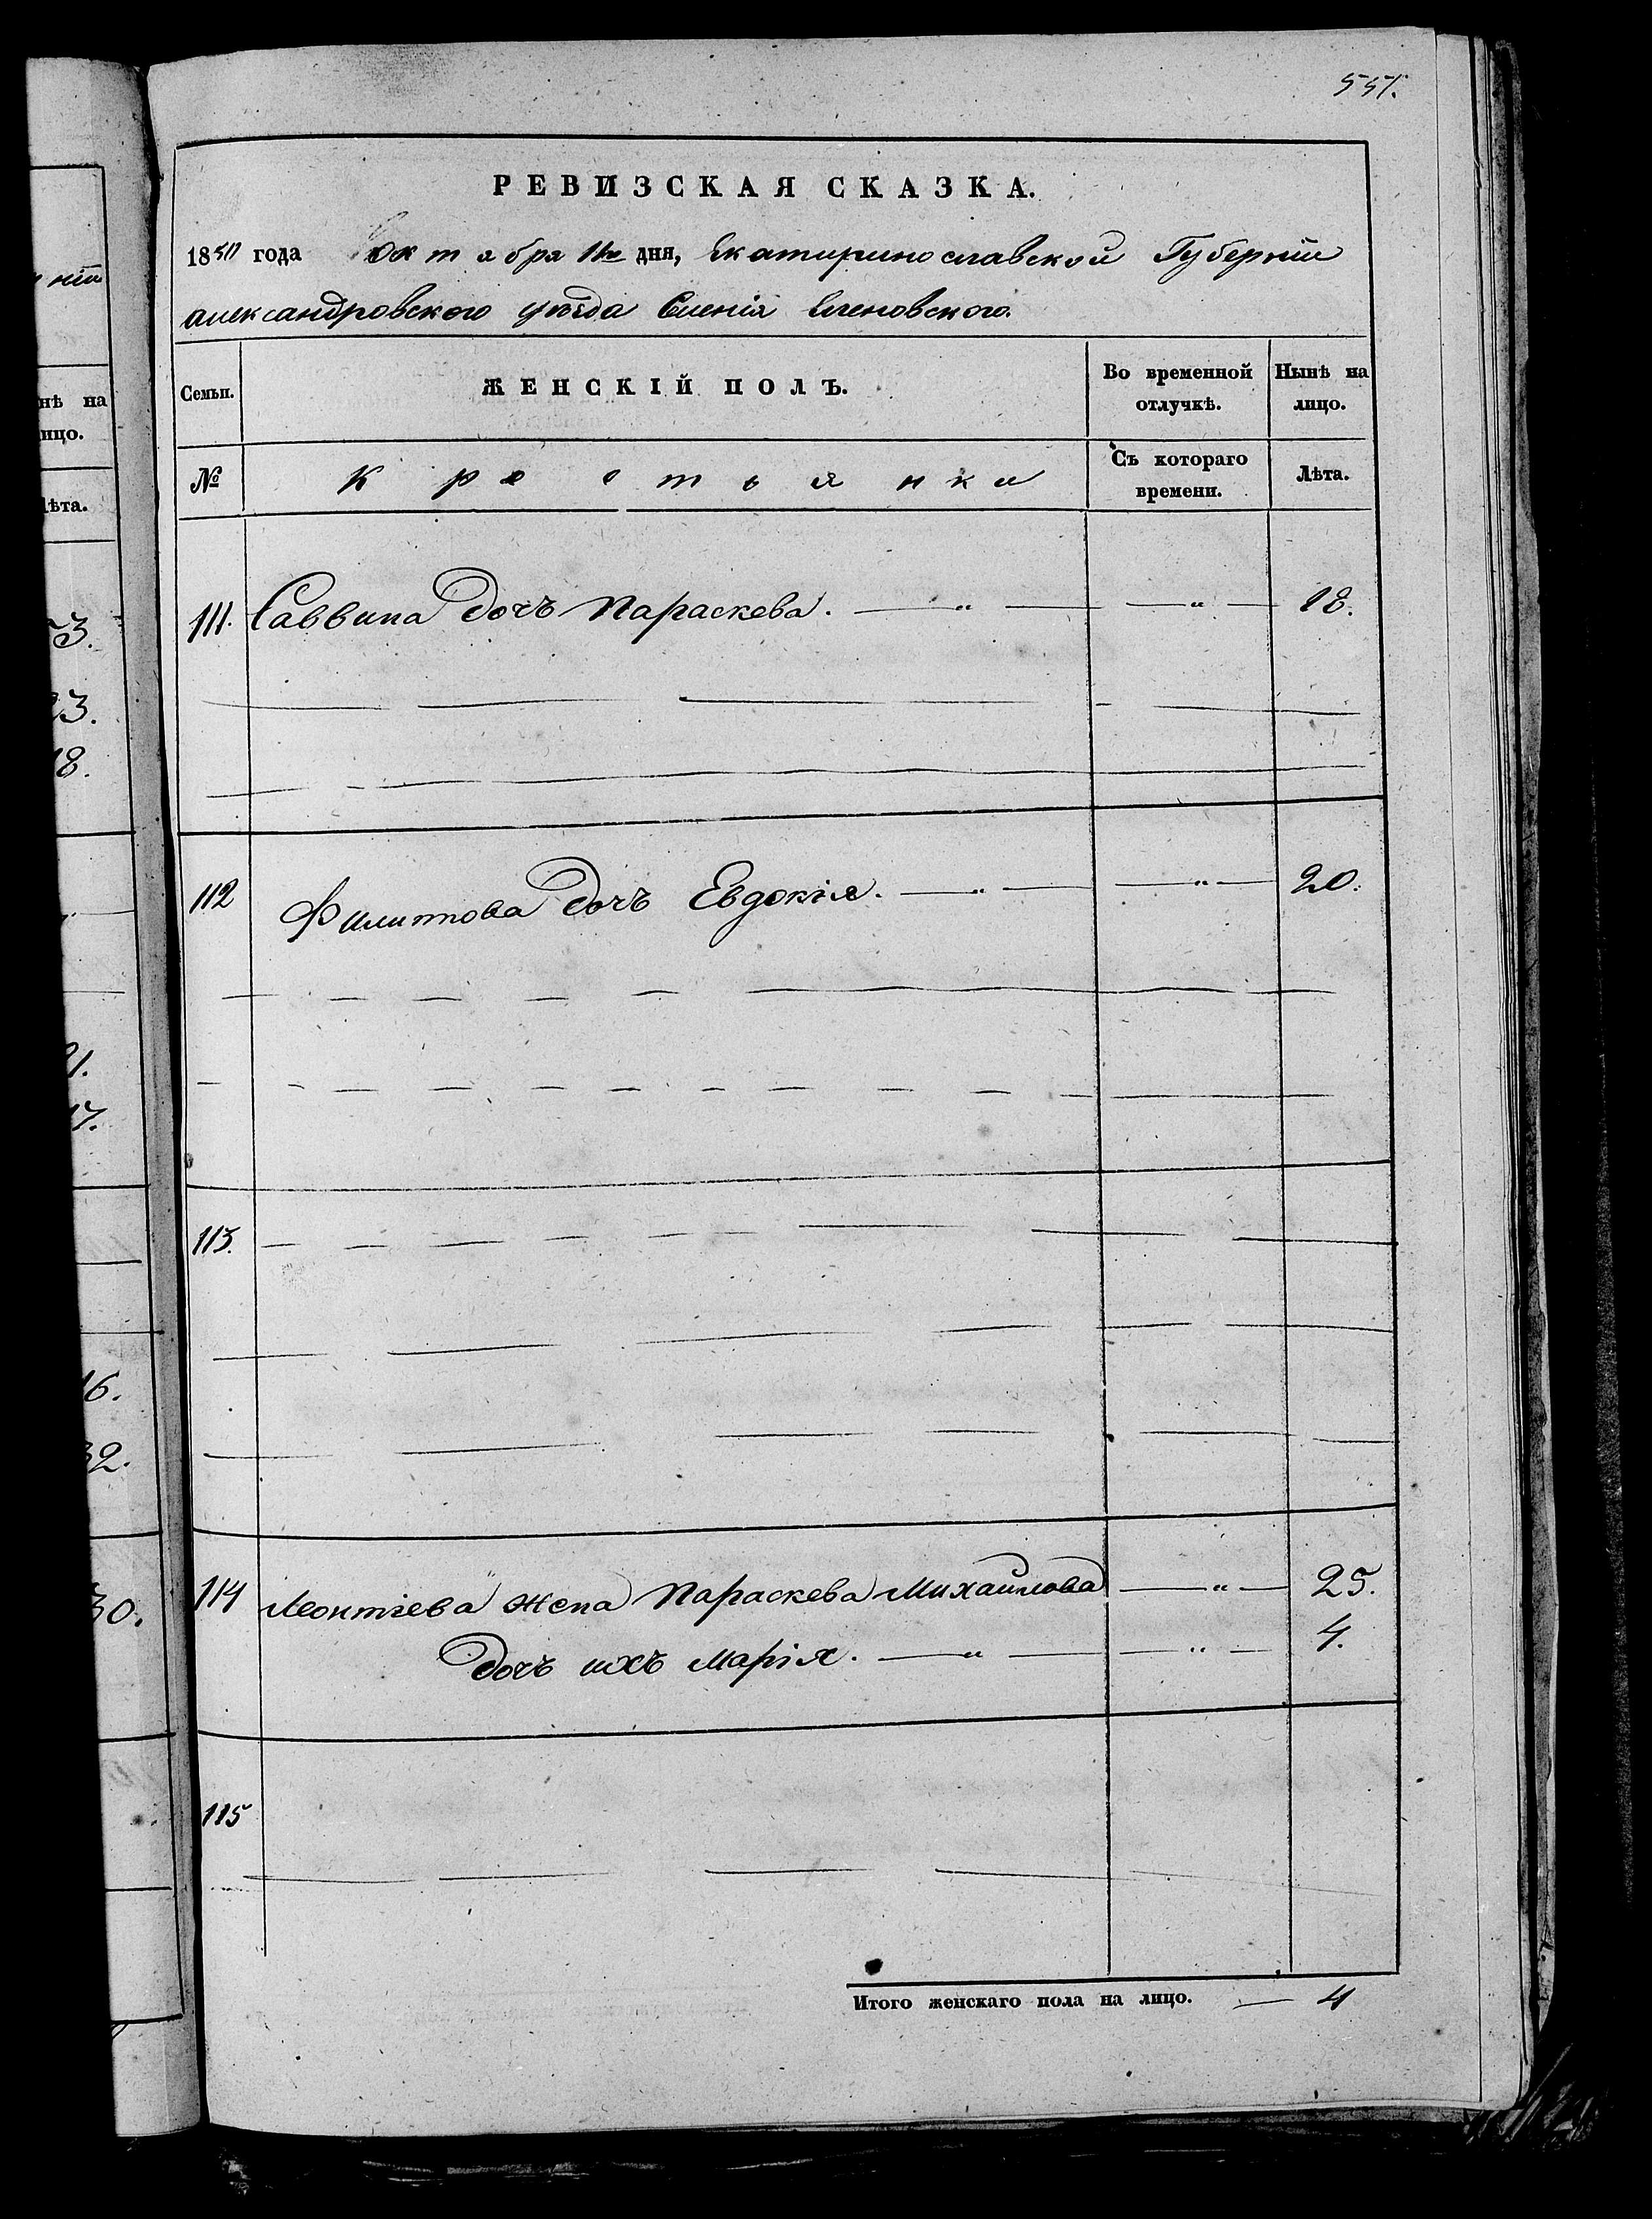 551.
РЕВИЗСКАЯ СКАЗКА.
1850 года Октября 11го дня, Екатиринославской Губернии
александровского уѣзда Селенія Еленовского.
Семьи. ЖЕНСКІЙ ПОЛЪ. Во временной отлучкѣ. Нынѣ на лицо.
№ Крестьянки Съ котораго времени. Лѣта.
111. Саввина дочъ Параскева. — „ — — „ — 18.
112 Филипова дочъ Евдокія. — „ — — „ — 20.
113.
114 Леонтіева жена Параскева Михайлова — „ — 25.
дочъ ихъ Марія. — „ — — „ — 4.
115
Итого женскаго пола на лицо. — 4
нѣ на
ицо.
ѣта.
3.
23.
18.
21.
17.
16.
32.
30.